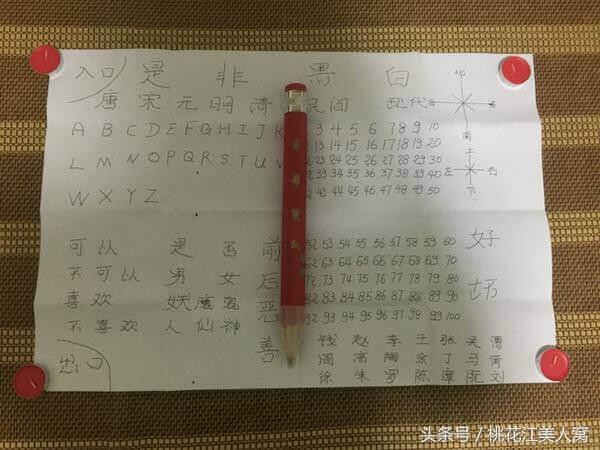 入口 是 非 黑 白 北
唐 宋 元 明 清 民间 现代
南
A B C D E F G H I J K 3 4 5 6 7 8 9 10
13 14 15 16 17 18 19 20 上
L M N O P Q R S T U V 23 24 25 26 27 28 29 30
33 34 35 36 37 38 39 40 左 右
W X Y Z 43 44 45 46 47 48 49 50 下
可以 是 否 前 52 53 54 55 56 57 58 59 60 好
62 63 64 65 66 67 68 69 70
不可以 男 女 后 72 73 74 75 76 77 78 79 80
喜欢 妖 魔 鬼 恶 82 83 84 85 86 87 88 89 90 坏
不喜欢 人 仙 神 92 93 94 95 96 97 98 99 100
善 钱 赵 李 王 张 吴
出口 周 高 陶 宗 丁 马 蒋
徐 朱 罗 陈 章 阮 刘
头条号／桃花江美人窝